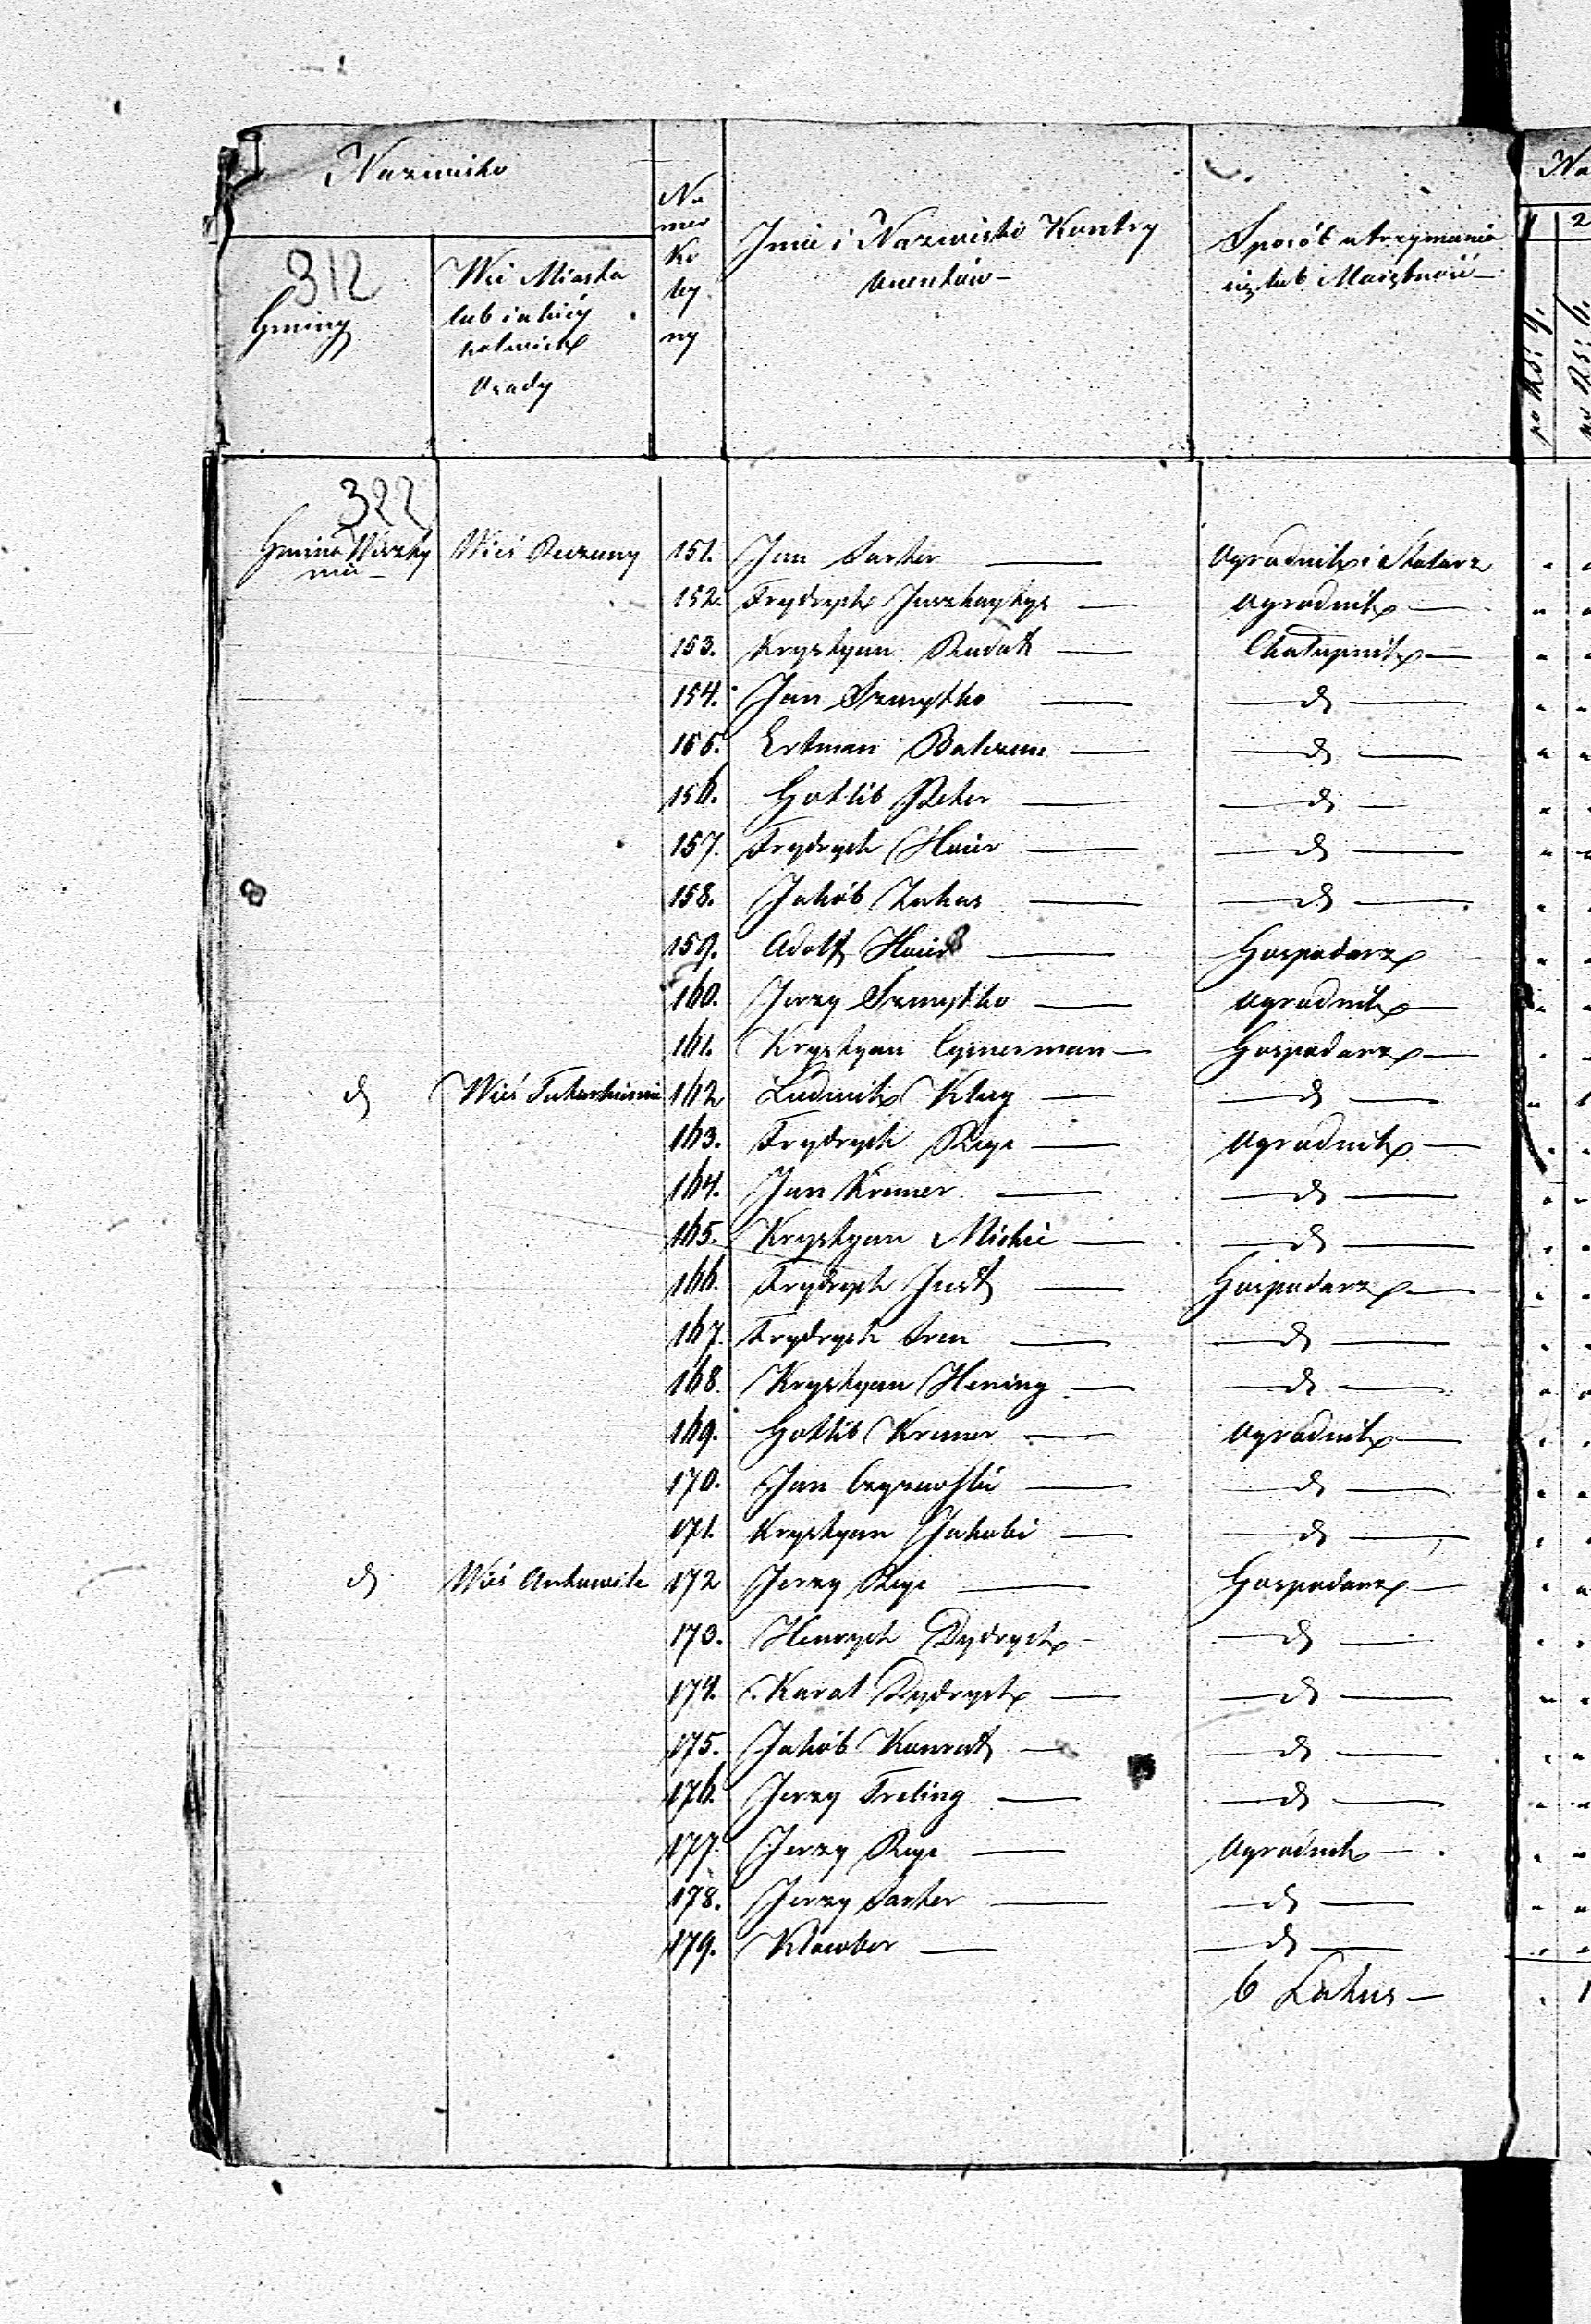 Nazwisko
312
Gminy
Wsi Miasta
lub iakiéy
Osady
Nu
mer
Ko
ley
ny
Jmie i Nazwisko Kontry
buentów
Sposób utrzymania
się lub Maiętność
Na
1 2
322
Gmina Wiszty
nie
Wieś Reczuny 151. Jan Sarker Ogrodnik i Stolarz
152. Frydrych Ogrodnik
153. Krystyan Rudat Chałupnik
154. Jan Szmytko d
155. Ertman d
156. Gotlib Reker d
157. Frydrych Haier d
158. Jakób Lukas d
159. Adolf Haier Gospodarz
160. Jerzy Szmytko Ogrodnik
161. Krystyan Cymerman Gospodarz
d Wieś 162 Ludwik Klug d
163. Frydrych Rege Ogrodnik
164. Jan Kremer d
165. Krystyan Mickie d
166. Frydrych Just Gospodarz
167. Frydrych d
168. Krystyan Hening d
169. Gotlib Kremer Ogrodnik
170. Jan d
171. Krystyan Jakobi d
d Wieś 172 Jerzy Rege Gospodarz
173. Henrych Dydrych d
174. Karol Dydrych d
175. Jakób Konrat d
176. Jerzy Freling d
177. Jerzy Rege Ogrodnik
178. Jerzy Sarker d
179. d
6 Latus